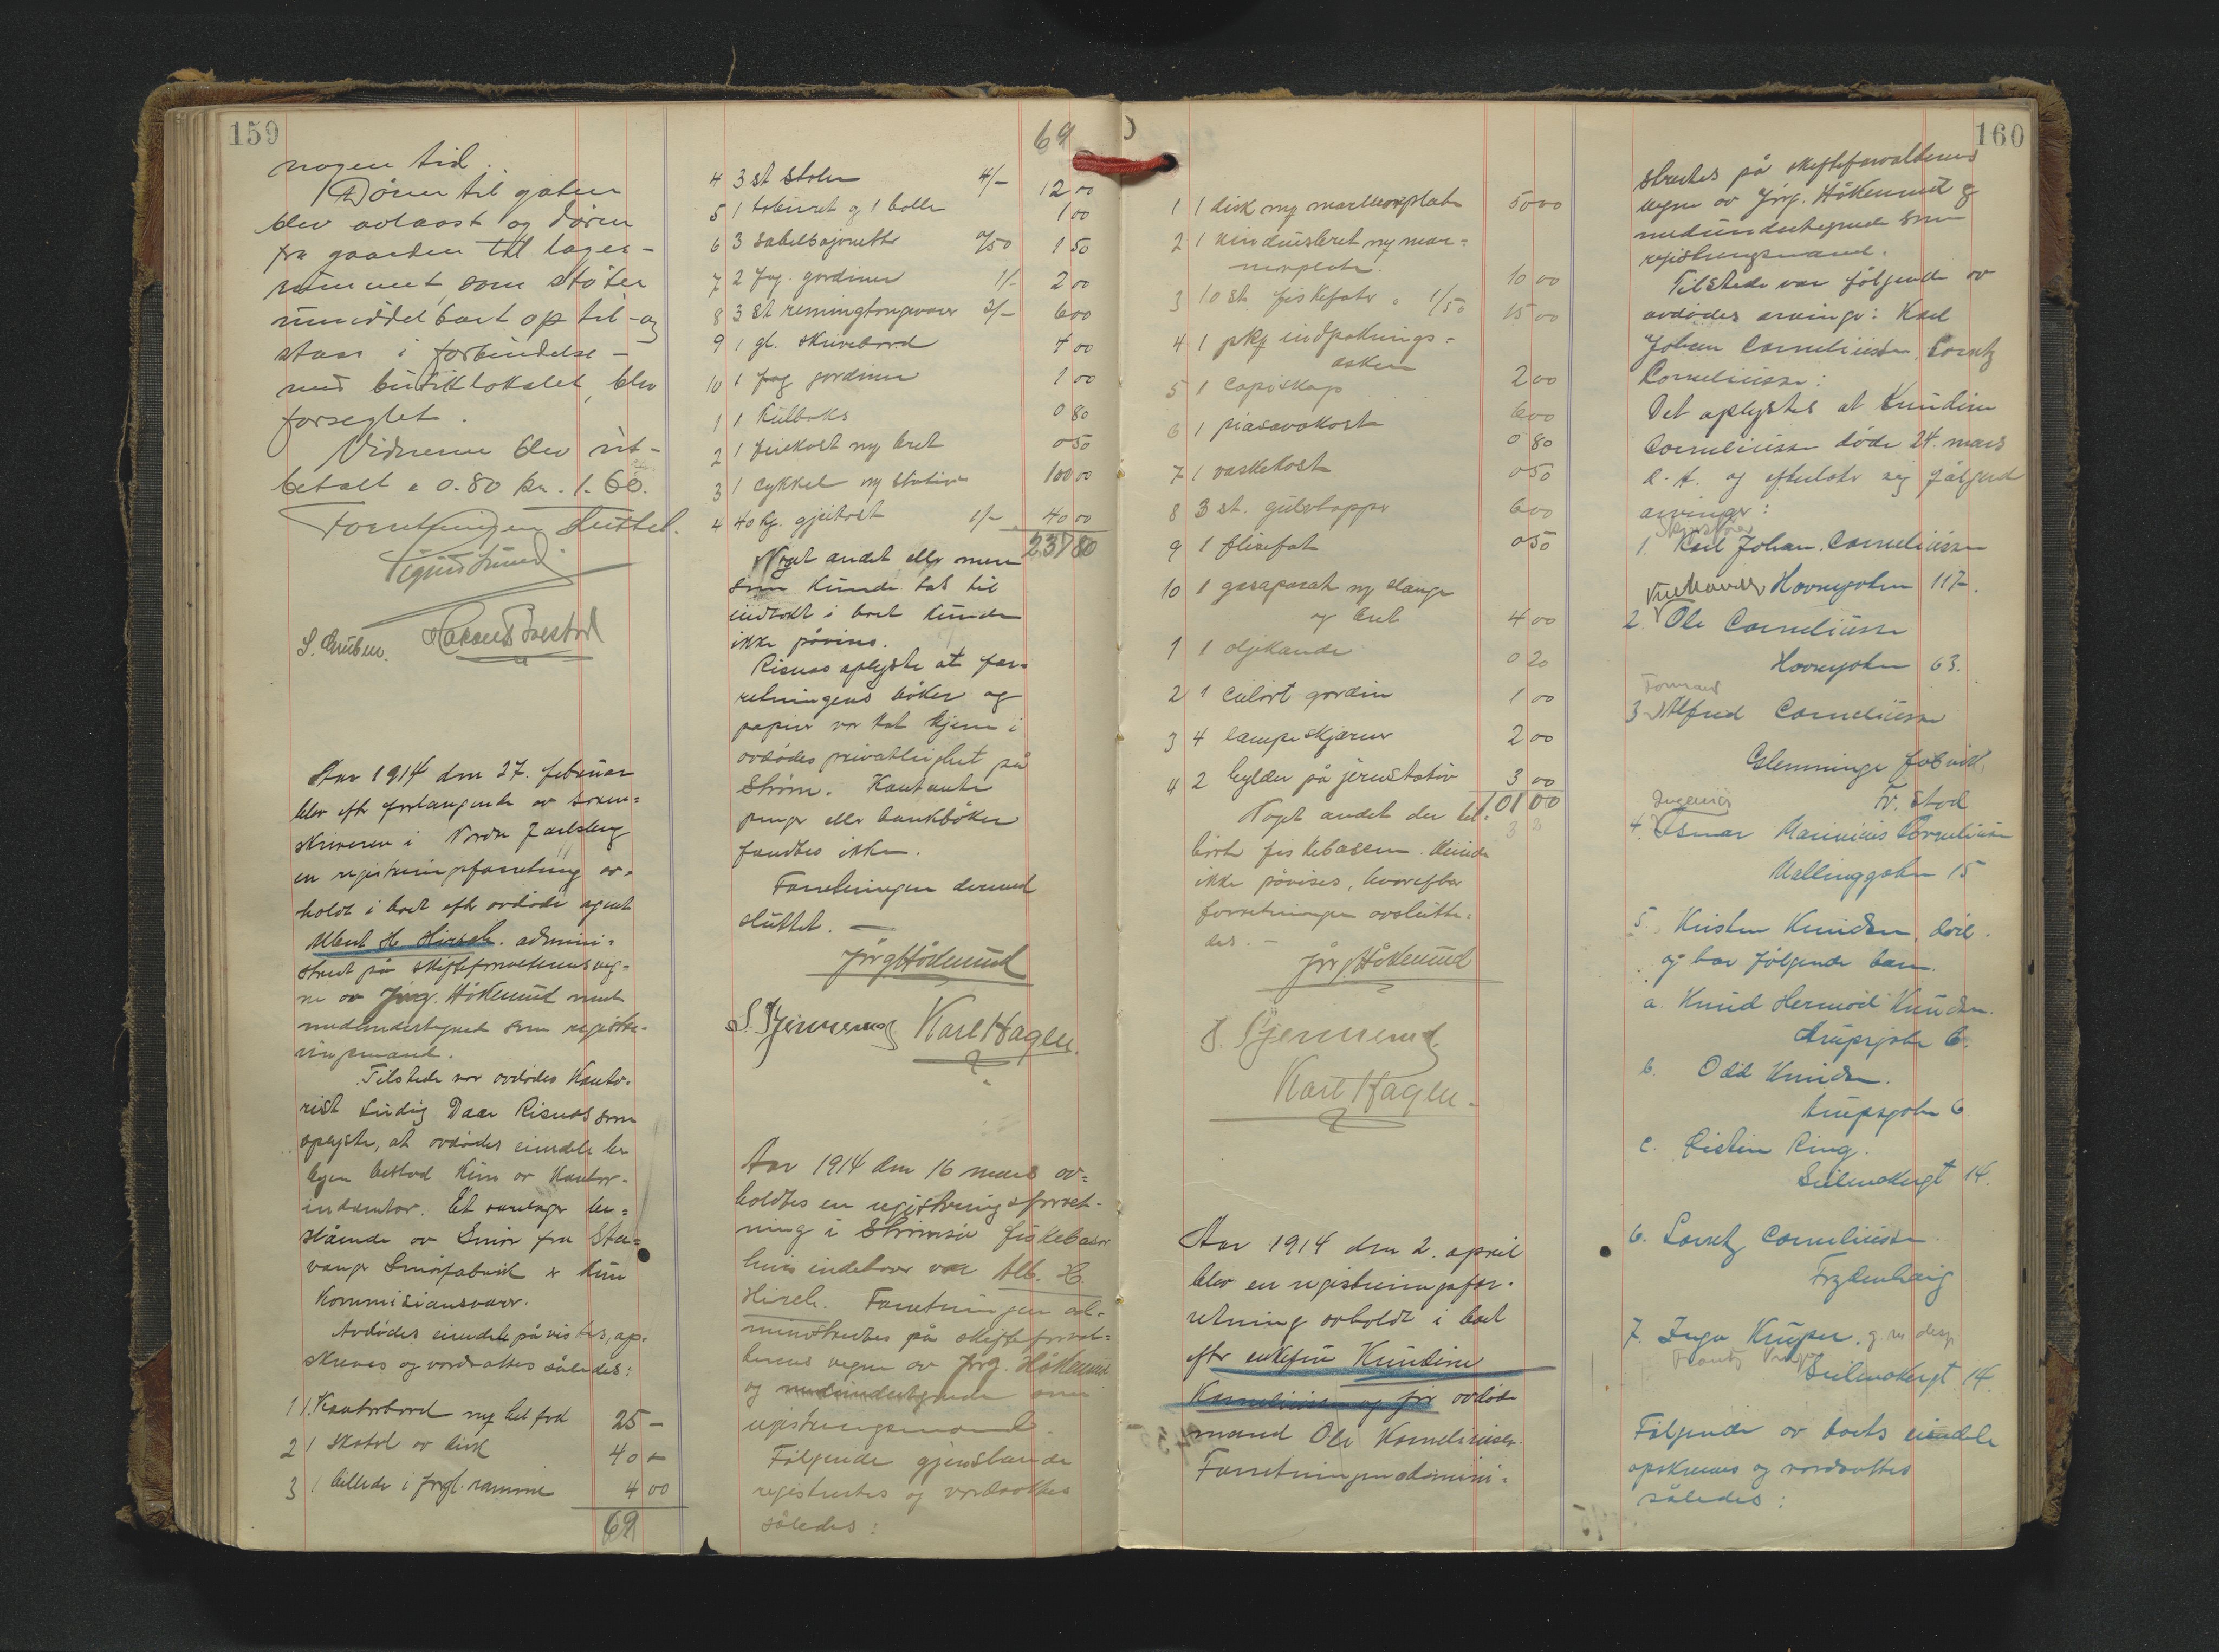 159
nogen tid.
Døren til gaten
blev avlaast og døren
fra gaarden til lager-
rummet, som støter
umiddelbart op til - og
staar i forbindelse -
med butiklokalet, blev
forseglet.
Vidnerne blev ut-
betalt a 0.80 kr. 1.60.
Forretningen sluttet.
Aar 1914 den 27. februar
blev efter forlangende av soren=
skriveren i Nordre Jarlsberg
en registreringsforretning av=
holdt i boet efter avdøde agent
Albert H Hirsch. admini=
streret på skifteforvalterens veg=
ne av Jørg. Hökemund med
medundertegnet som registre-
ringsmand.
Tilstede var avdødes kanto-
rist Ludvig Daae Risnæs som
oplyste, at avdødes eiendele her
i byen bestod kun av kontor-
inventar. Et varelager be=
stående av Smør fra Sta=
vanger Smørfabrik er kun
Kommisionsvarer.
Avdødes eiendele påvistes, op-
skreves og verdsattes således:
1 1 Kontorbord 25 -
2 1 skatol av 40 -
3 1 billede i forgl. ramme 4 00
69
69
4 3 st stoler 4/- 12 00
5 1 taburet og 1 bolle 1 00
6 3 sabelbajonetter 0/50 1 50
7 2 fag. gardiner 1/- 2 00
8 3 st remingtongevær 2/- 6 00
9 1 gl. skrivebord 4 00
10 1 fag gardiner 1 00
1 1 Kulboks 0 80
2 1 feiekost og bret 0 50
3 1 cykkel og stativ 100 00
4 40 kg. gjeitost 1/- 40 00
237 80
Noget andet eller mere
som kunde tas til
indtekt i boet kunde
ikke påvises.
Risnæs oplyste at for=
retningens bøker og
papirer var tat hjem i
avdødes privatleilighet på
Strøm. Kontante
penger eller bankbøker
fandtes ikke.
Forretningen dermed
sluttet. —
Jørg Hökemund
Karl Hagen.
Aar 1914 den 16 mars av=
holdtes en registreringsforret-
ning i Strømsø fiskebasar
hvis indehaver var Alb. H.
Hirsch. Forretningen ad=
ministrertes på skifteforval=
terens vegne av Jørg. Hökemund
og medundertegnede som
registreringsmand.
Følgende gjenstande
registrertes og verdsattes
således:
1 1 disk m/ marmorplate 50 00
2 1 vindusbret m/ mar=
morplate. 10 00
3 10 st. fiskefater a 1/50 15 00
4 1 pkg indpaknings=
æsker 2 00
5 1 6 00
6 1 piasavakost 0 80
7 1 vaskekost 0 50
8 3 st. 6 00
9 1 flisefat 0 50
10 1 gasaparat m/ slange
og bret 4 00
1 1 oljekande 0 20
2 1 gardin 1 00
3 4 lampeskjærmer 2 00
4 2 hylder på jernstativ 3 00
101 00
Noget andet der til=
hørte fiskebasaren kunde
ikke påvises, hvorefter
forretningen avslutte=
des. —
Jørg. Hökemund
Karl Hagen.
Aar 1914 den 2. april
blev en registreringsfor=
retning avholdt i boet
efter enkefru Kundine
Korneliussen og før avdøde
mand Ole Korneliussen.
Forretningen admini=
160
strertes på skifteforvalterens
vegne av Jørg. Hökemund og
medundertegnede som
registreringsmand.
Tilstede var følgende av
avdødes arvinger: Karl
Johan Corneliussen, Lorentz
Corneliussen:
Det oplystes at Kundine
Corneliussen døde 24. mars
d. A. og efterlater sig følgende
arvinger:
1. Karl Johan. Corneliussen
Havnegaten 117.
2. Ole Corneliussen
Havnegaten 63.
Formand
3. Alfred Corneliussen
Glemminge
Fr. stad
Ingeniør
4. Marinius Corneliussen
Mallinggaten 15
5. Kristen Knudsen, død.
og har følgende barn.
a. Knud Hermod Knudsen.
Arupsgate 6.
b. Odd Knudsen.
Arupsgate 6
c. Eistein Ring.
6. Lorentz Corneliussen
Frydenhaug
7. Inga Krüger. g. m
Følgende av boets eiendele
opskreves og verdsattes
således: